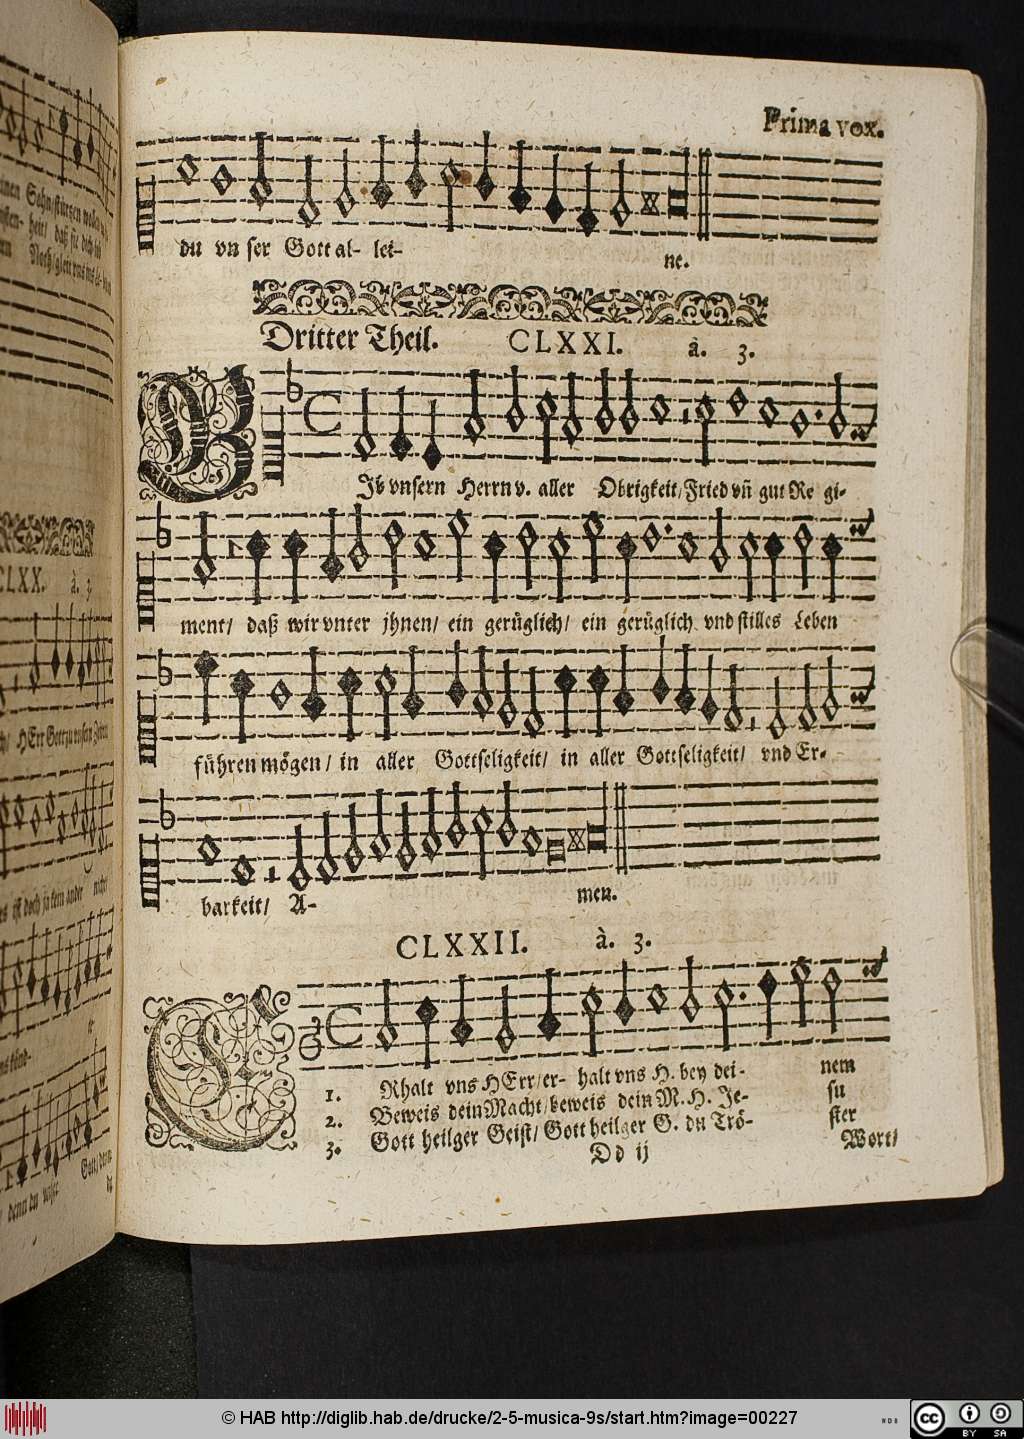 Prima vox.
du vn ser Gott al- lei- ne.
Dritter Theil. CLXXI. à. 3.
GIb vnsern Herrn v. aller Obrigkeit/Fried vñ gut Re gi-
ment/ daß wir vnter jhnen/ ein gerüglich/ ein gerüglich vnd stilles Leben
führen mögen/ in aller Gottseligkeit/ in aller Gottseligkeit/ vnd Er-
barkeit/ A- men.
CLXXII. à. 3.
1. ERhalt vns HErr/er- halt vns H. bey dei- nem
2. Beweis dein Macht/beweis dein M. H. Je- su
3. Gott heilger Geist/ Gott heilger G. du Trö- ster
Dd ij Wort/
CLXX. à. 3.
© HAB http://diglib.hab.de/drucke/2-5-musica-9s/start.htm?image=00227
cc BY SA